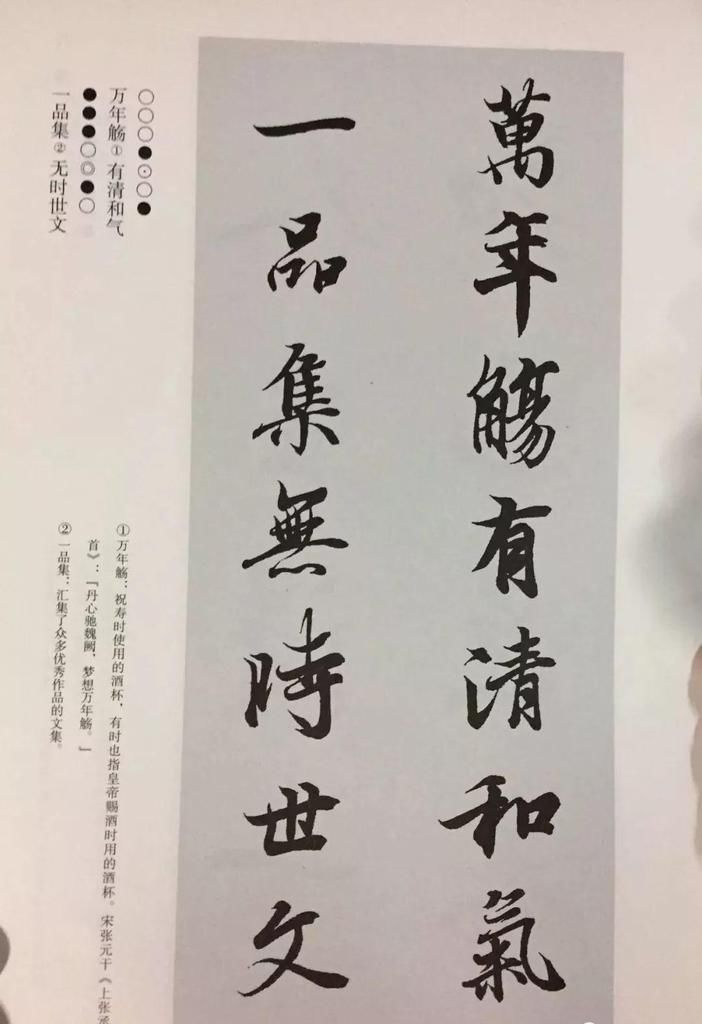 萬年觴有清和氣
一品集無時世文
○○○●⊙○●
万年觞①有清和气
●●●○◎●○
一品集②无时世文
①万年觞：祝寿时使用的酒杯，有时也指皇帝赐酒时用的酒杯。宋张元干《上张丞
首》：「丹心驰魏阙，梦想万年觞。」
②一品集：汇集了众多优秀作品的文集。